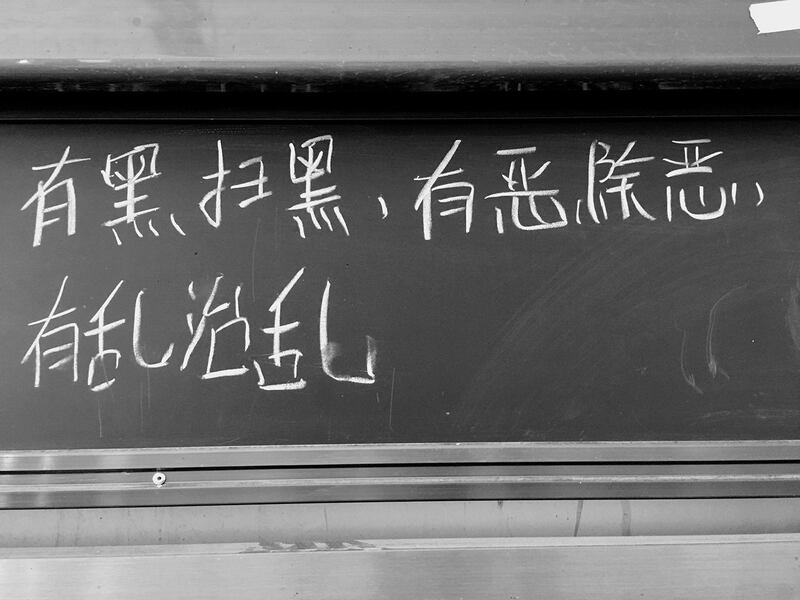 有黑扫黑，有恶除恶，
有乱治乱